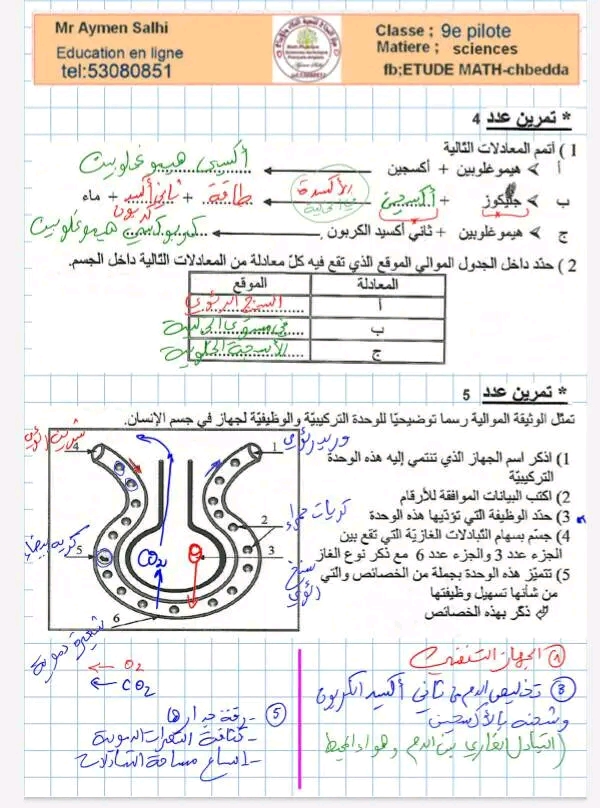 Mr Aymen Salhi
Education en ligne
tel:53080851
Classe ; 9e pilote
Matiere ; sciences
fb;ETUDE MATH-chbedda
* تمرين عدد 4
1 ) أتمم المعادلات التالية
أ ➢ هيموغلوبين + أكسجين أكسي هيموغلوبين
ب ➢ جليكوز + أكسجين الأكسدة طاقة + ثاني أكسيد كربون + ماء
ج ➢ هيموغلوبين + ثاني أكسيد الكربون كربوكسي هيموغلوبين
2 ) حدّد داخل الجدول الموالي الموقع الذي تقع فيه كلّ معادلة من المعادلات التالية داخل الجسم.
المعادلة الموقع
أ السنخ الرئوي
ب في مستوى الخلية
ج الأنسجة الخلوية
* تمرين عدد 5
تمثل الوثيقة الموالية رسما توضيحيّا للوحدة التركيبيّة والوظيفيّة لجهاز في جسم الإنسان.
1) اذكر اسم الجهاز الذي تنتمي إليه هذه الوحدة
التركيبيّة
2) اكتب البيانات الموافقة للأرقام
3) حدّد الوظيفة التي تؤدّيها هذه الوحدة
4) جسّم بسهام التبادلات الغازيّة التي تقع بين
الجزء عدد 3 والجزء عدد 6 مع ذكر نوع الغاز
5) تتميّز هذه الوحدة بجملة من الخصائص والتي
من شأنها تسهيل وظيفتها
ذكّر بهذه الخصائص
شريان رئوي
4
وريد رئوي
1
كريات حمراء
2
كرية بيضاء
5
CO2
3
سنخ
رئوي
6
شعيرة دموية
O2
CO2
① الجهاز التنفسي
③ تخليص الدم من ثاني أكسيد الكربون
وشحنه بالأكسجين
(التبادل الغازي بين الدم وهواء المحيط
⑤ - رقة جدارها
- كثافة الشعيرات الدموية
- اتساع مساحة التبادلات